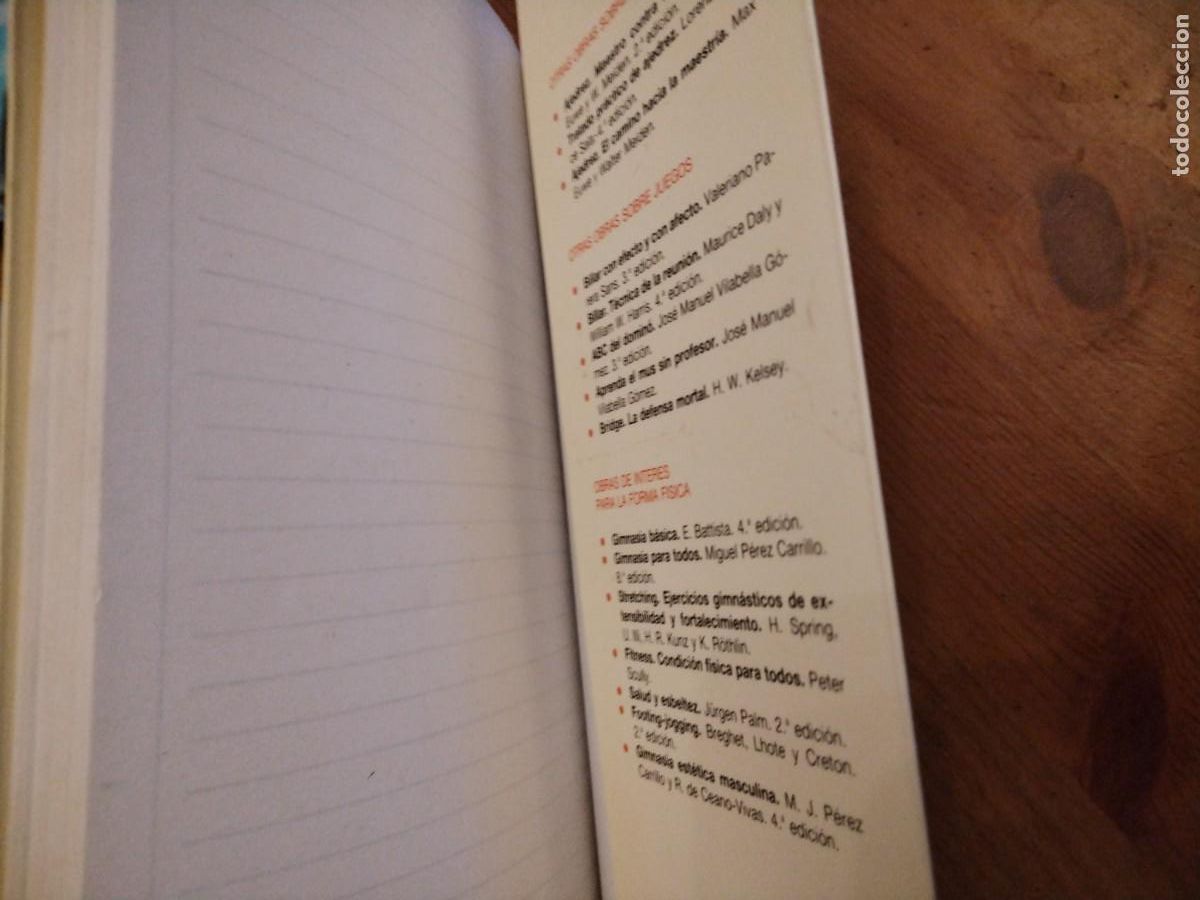 OTRAS OBRAS SOBRE
• Ajedrez. Maestro contra
Euwe y W. Meiden. 2.ª edición.
• Tratado práctico de ajedrez. Lorenzo
ce Sala-4.ª edición.
• Ajedrez. El camino hacia la maestría. Max
Euwe y Walter Meiden.
OTRAS OBRAS SOBRE JUEGOS
• Billar con efecto y con afecto. Valeriano Pa-
rera Sans. 3.ª edición.
• Billar. Técnica de la reunión. Maurice Daly y
William W. Harris. 4.ª edición.
• ABC del dominó. José Manuel Vilabella Gó-
mez. 3.ª edición.
• Aprenda el mus sin profesor. José Manuel
Vilabella Gómez.
• Bridge. La defensa mortal. H. W. Kelsey.
OBRAS DE INTERES
PARA LA FORMA FISICA
• Gimnasia básica. E. Battista. 4.ª edición.
• Gimnasia para todos. Miguel Pérez Carrillo.
8.ª edición.
• Stretching. Ejercicios gimnásticos de ex-
tensibilidad y fortalecimiento. H. Spring,
U. Illi, H. R. Kunz y K. Röthlin.
• Fitness. Condición física para todos. Peter
Scully.
• Salud y esbeltez. Jürgen Palm. 2.ª edición.
• Footing-jogging. Breghet, Lhote y Creton.
2.ª edición.
• Gimnasia estética masculina. M. J. Pérez
Carrillo y R. de Ceano-Vivas. 4.ª edición.
todocoleccion